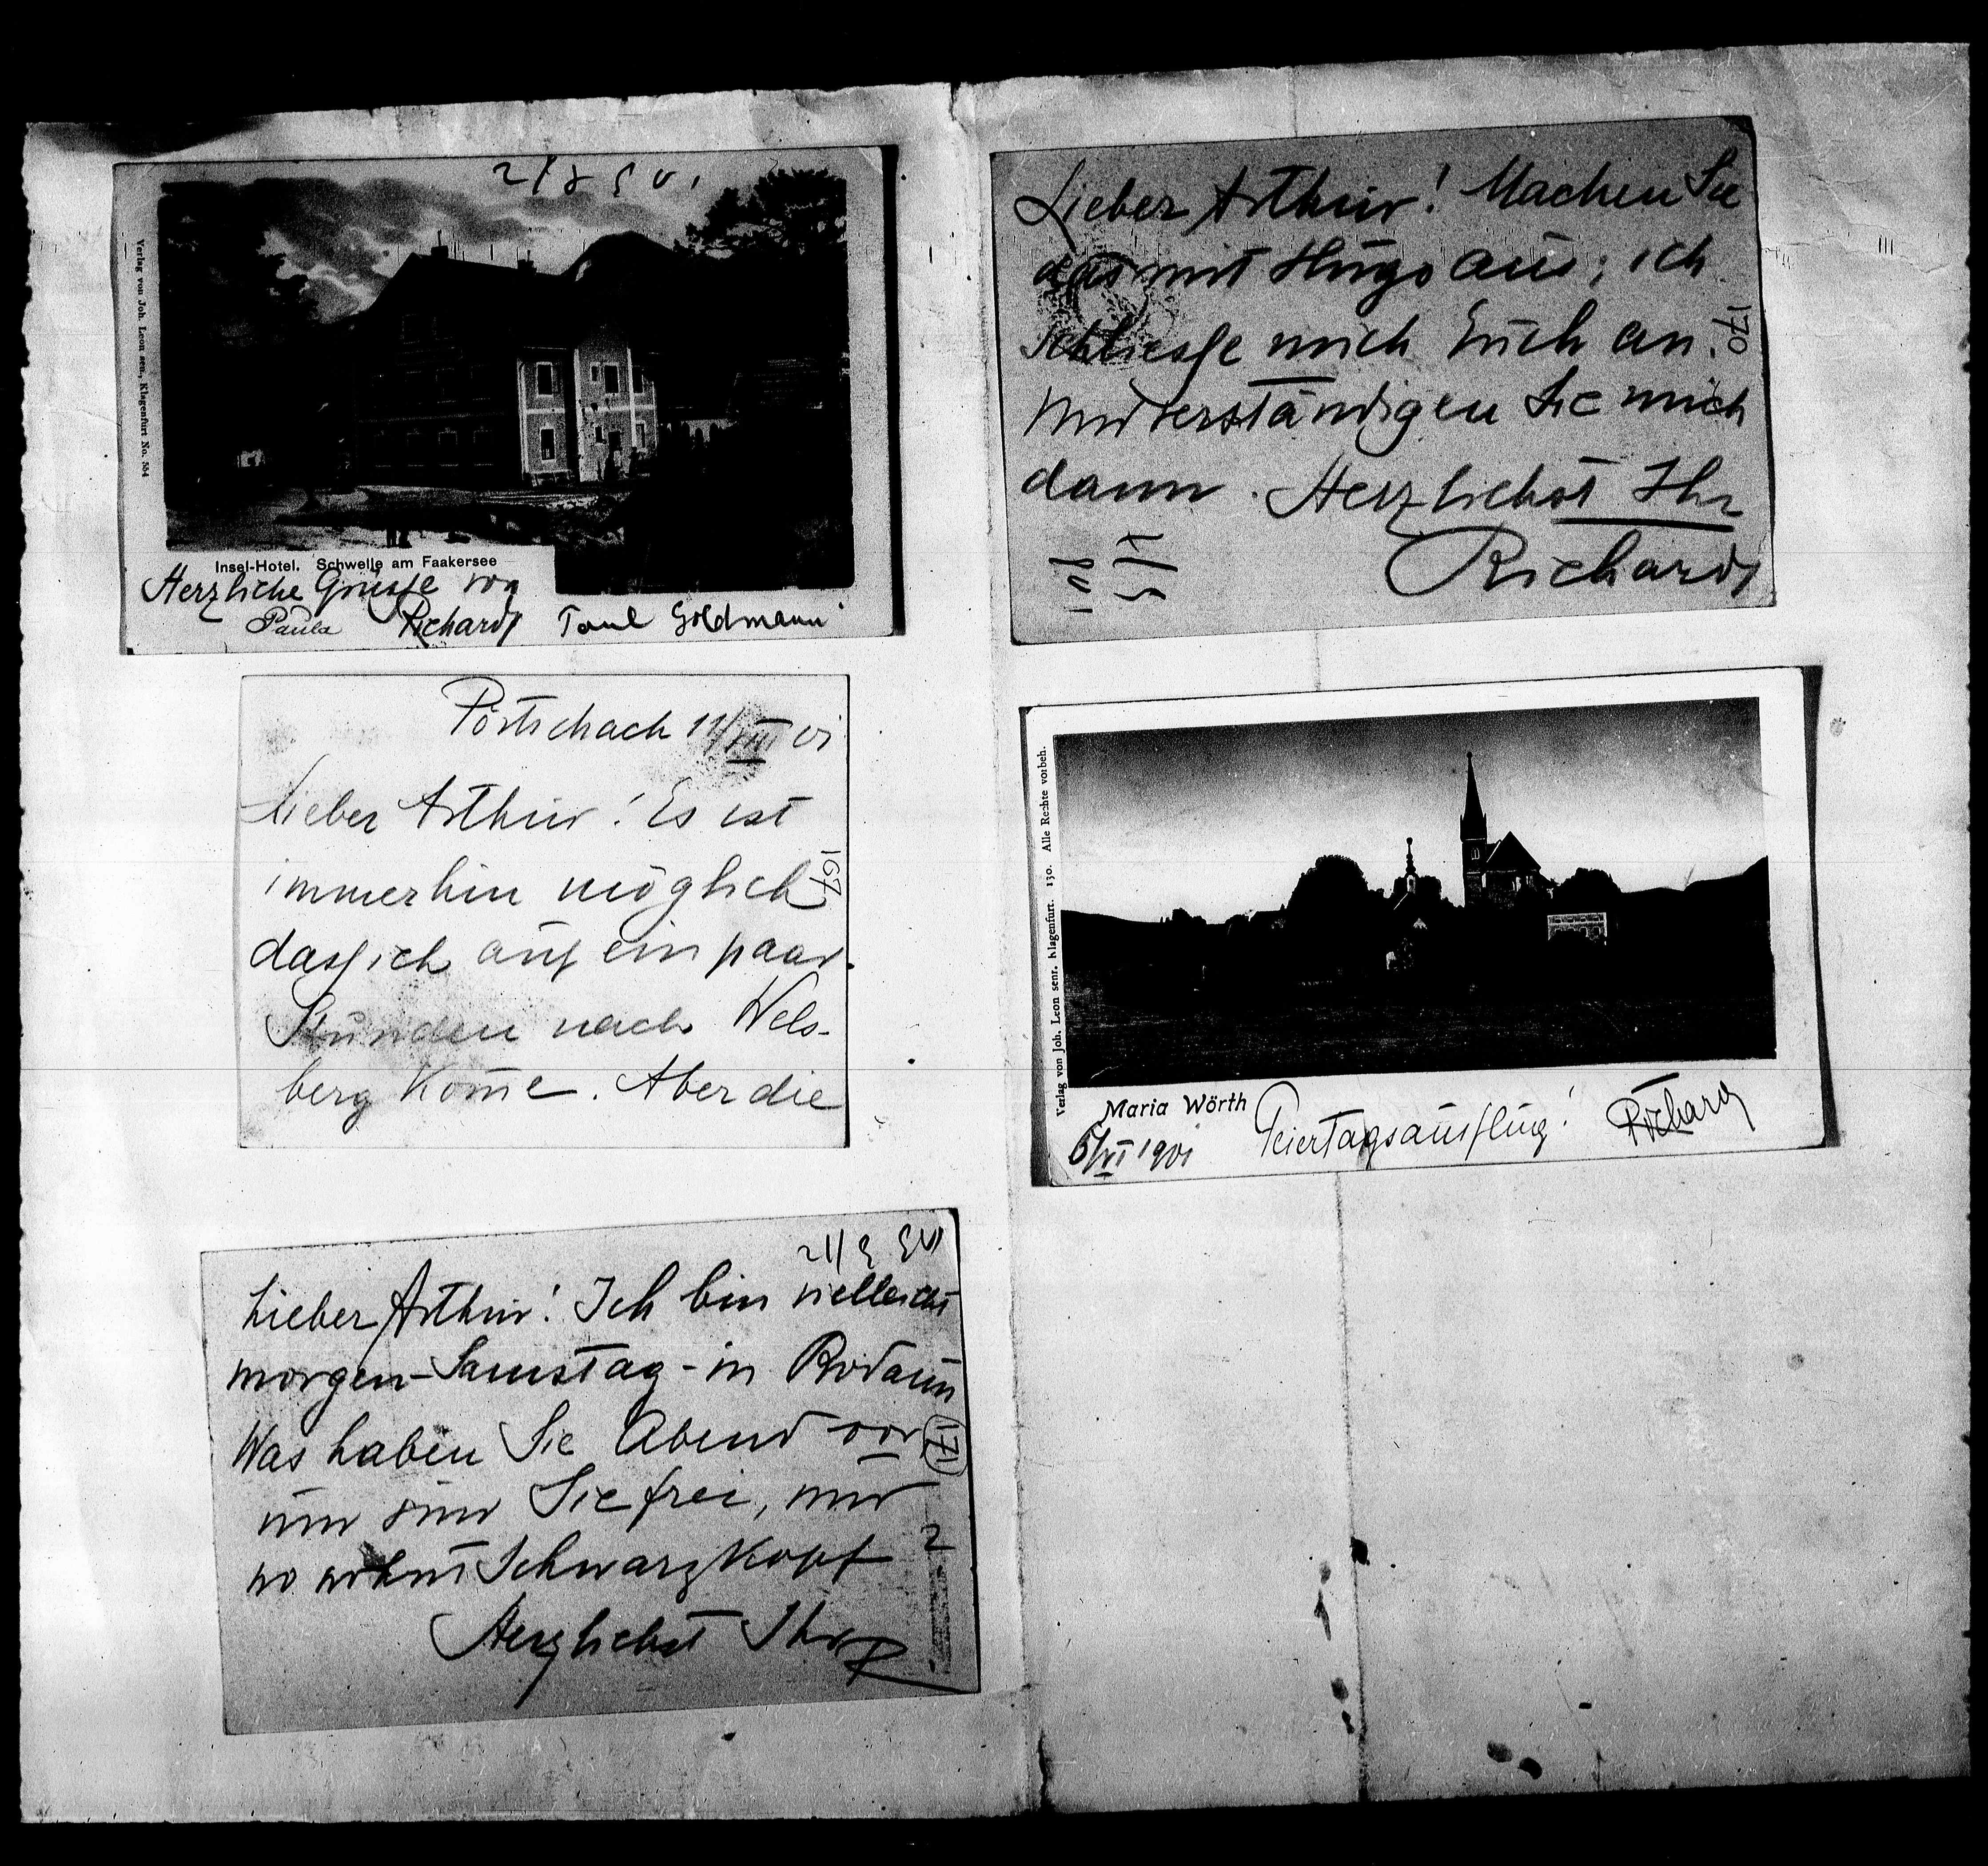 Verlag von Joh. Leon sen., Klagenfurt No. 554
Insel-Hotel. Schwelle am Faakersee
Herzliche Grüsse von
Paula Richard Paul Goldmann
Pörtschach 11/VIII 01
Lieber Arthur! Es ist
immerhin möglich
dass ich auf ein paar
Stunden nach Wels-
berg kom̄e. Aber die
167
Lieber Arthur! Ich bin vielleicht
morgen – Samstag – in Rodaun
Was haben Sie Abend vor
wo wohnt Schwarzkopf
Herzlichst Ihr R
171
Lieber Arthur! Machen Sie
das mit Hugo aus; ich
schliesse mich Euch an.
Und verständigen Sie mich
dann. Herzlichst Ihr
Richard
170
Verlag von Joh. Leon senr. Klagenfurt. 130. Alle Rechte vorbeh.
Maria Wörth
Feiertagsausflug! Richard
1901